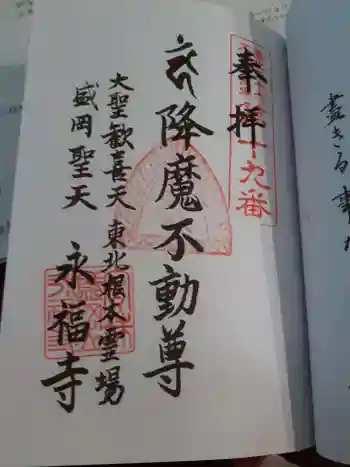 奉拝
十九番
降魔不動尊
大聖歓喜天 東北根本霊場
盛岡聖天
永福寺